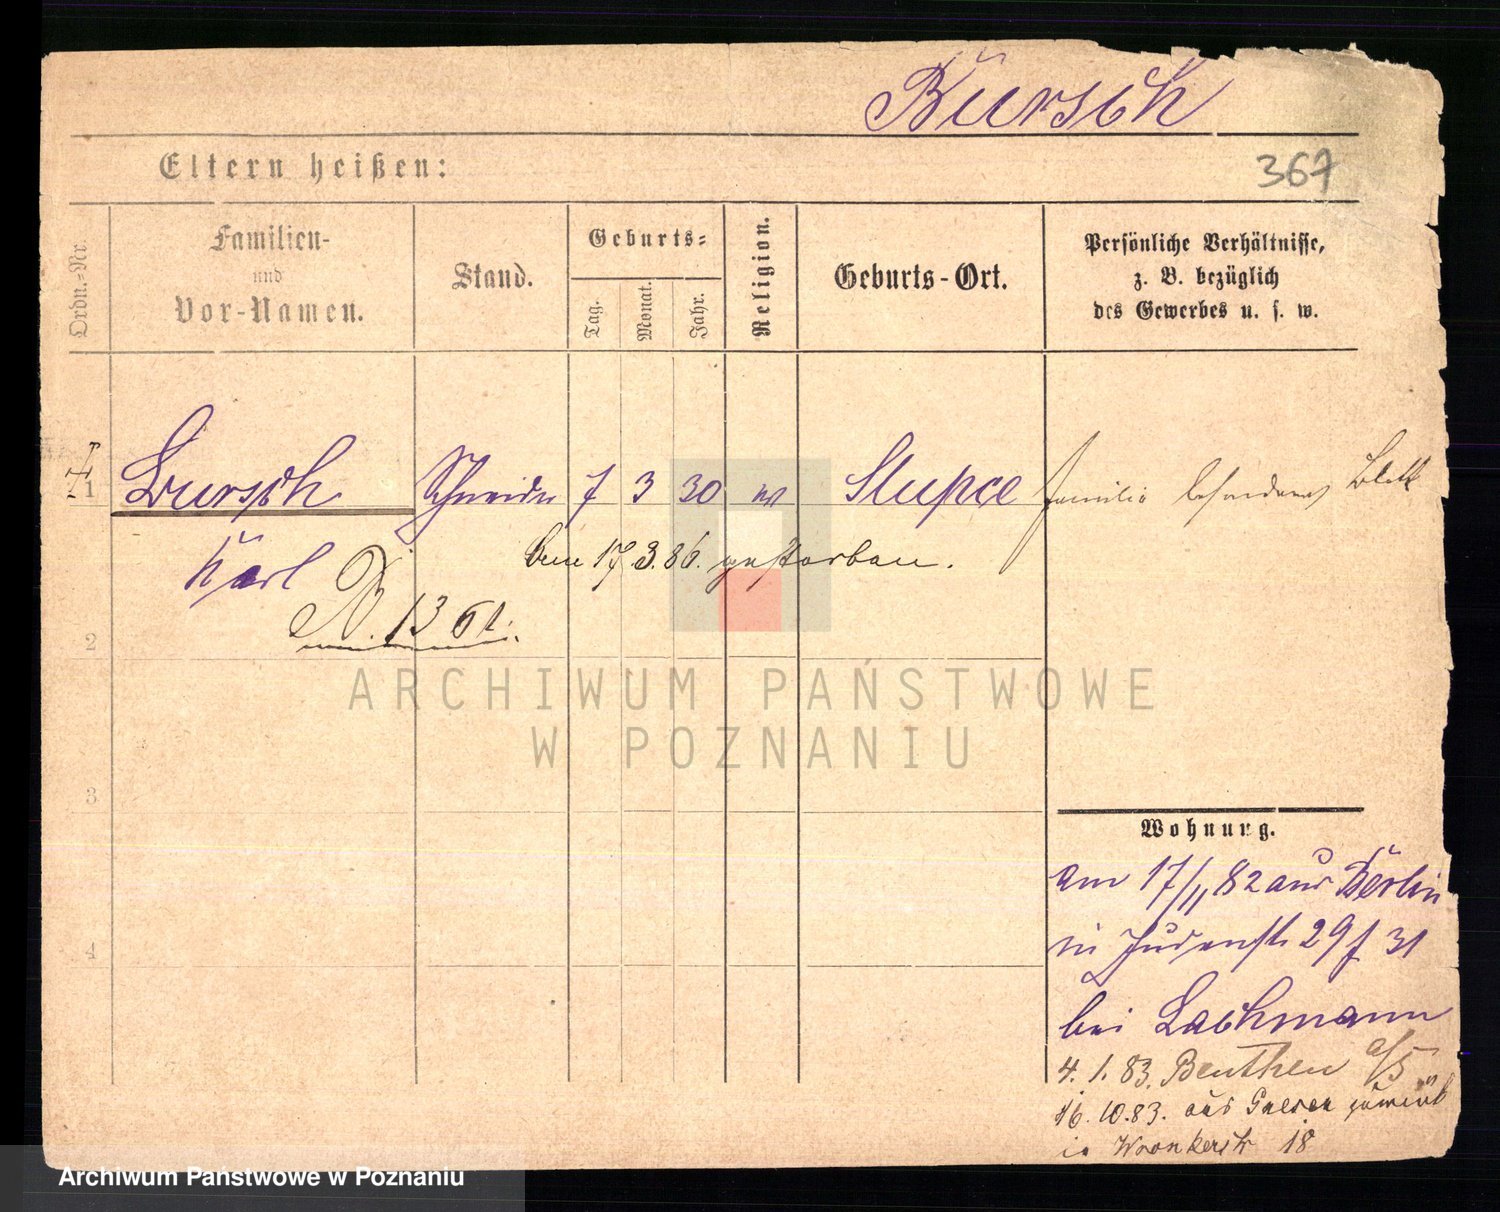 Bursch
Eltern heißen:
367
Ordn.-Nr.
Familien-
und
Vor-Namen.
Stand.
Geburts-
Tag.
Monat.
Jahr.
Religion.
Geburts-Ort.
Persönliche Verhältnisse,
z. B. bezüglich
des Gewerbes u. s. w.
1 Bursch Schneider 7 3 30 Slupce Familie besonderes Blatt
Karl
den 17.3.86. gestorben.
1361.
2
ARCHIWUM PAŃSTWOWE
W POZNANIU
3
Wohnung.
am 17/11 82 aus Berlin
in Judenstr 29 f 31
4
bei Lachmann
4. 1. 83. Beuthen o/S
16. 10.83. aus Gnesen zurück
in Wronkerstr 18
Archiwum Państwowe w Poznaniu